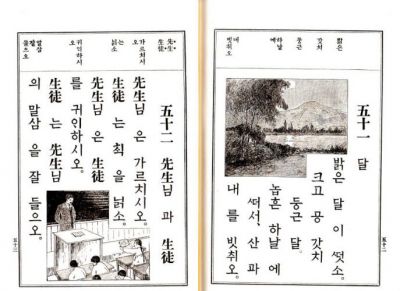 밝은
갓치
둥근
하날에
내
빗취오
五十一 달
밝은 달이 떳소.
크고 공갓치
둥근 달.
놉흔 하날에
떠서, 산과
내를 빗취오.
先生
生徒
가르치시오
귀인하시오
말삼
五十二 先生님과 生徒
先生님은 가르치시오.
生徒는 책을 닑소.
先生님은 生徒
를 귀인하시오.
生徒는 先生님
의 말삼을 잘 들으오.